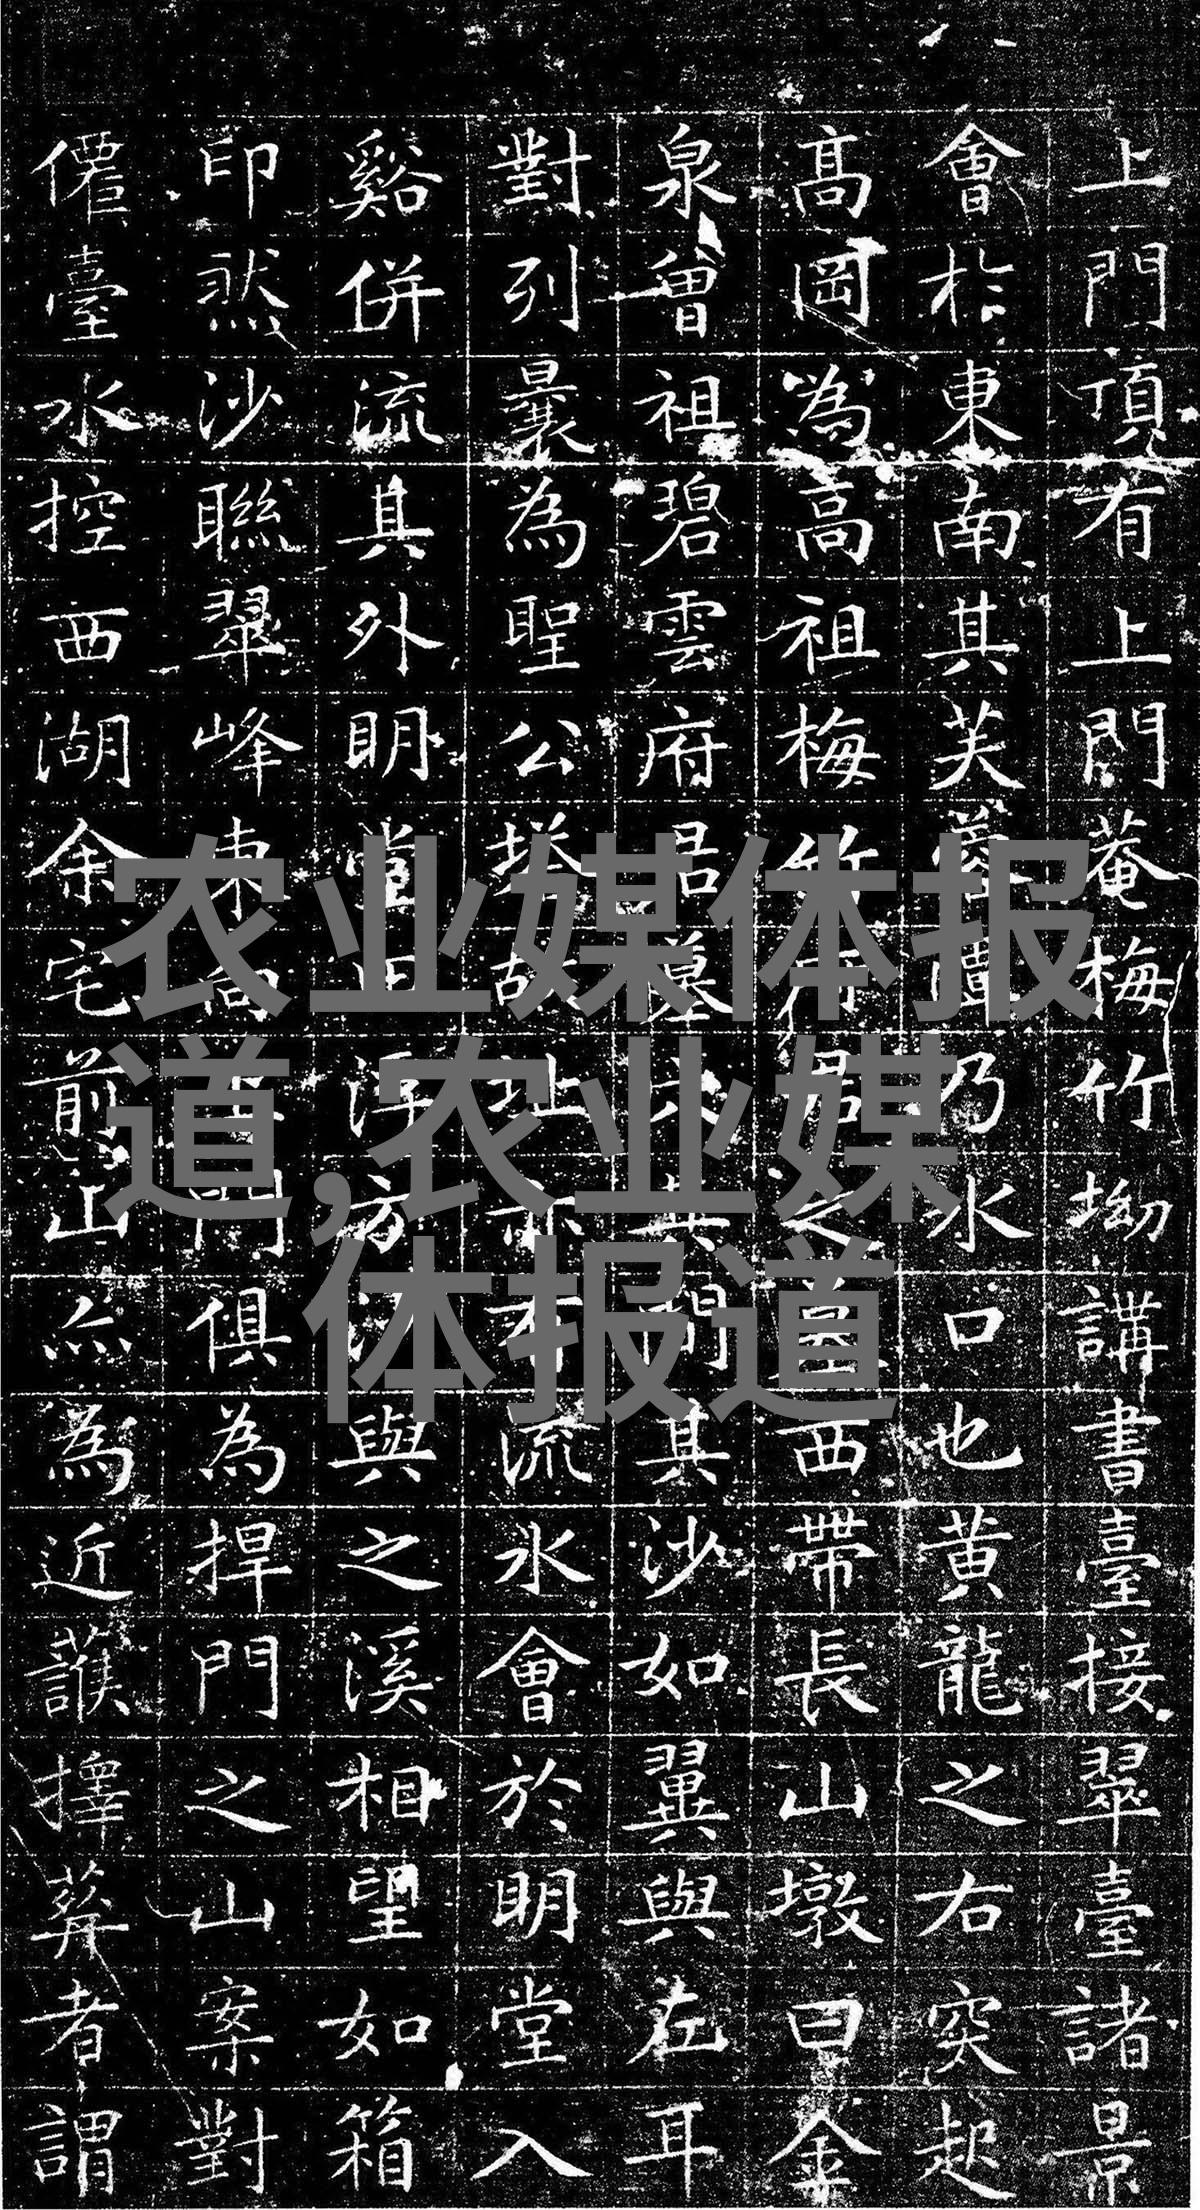 上門頂有上門菴梅竹坳講書臺接翠臺諸景
會於東南其芙蓉乃水口也黃龍之右突起
高岡為高祖梅竹府君之墓西帶長山墩曰金
泉曾祖碧雲府君墓間其沙如翼與左耳
對列曩為聖公塔故址亦有流水會於明堂入
谿併流其外明堂浮方與之溪相望如箱
印然沙聯翠峰東向上門俱為捍門之山案對
僊臺水控西湖余宅前山亦為近護擇葬者謂
农业媒体报
道,农业媒
体报道